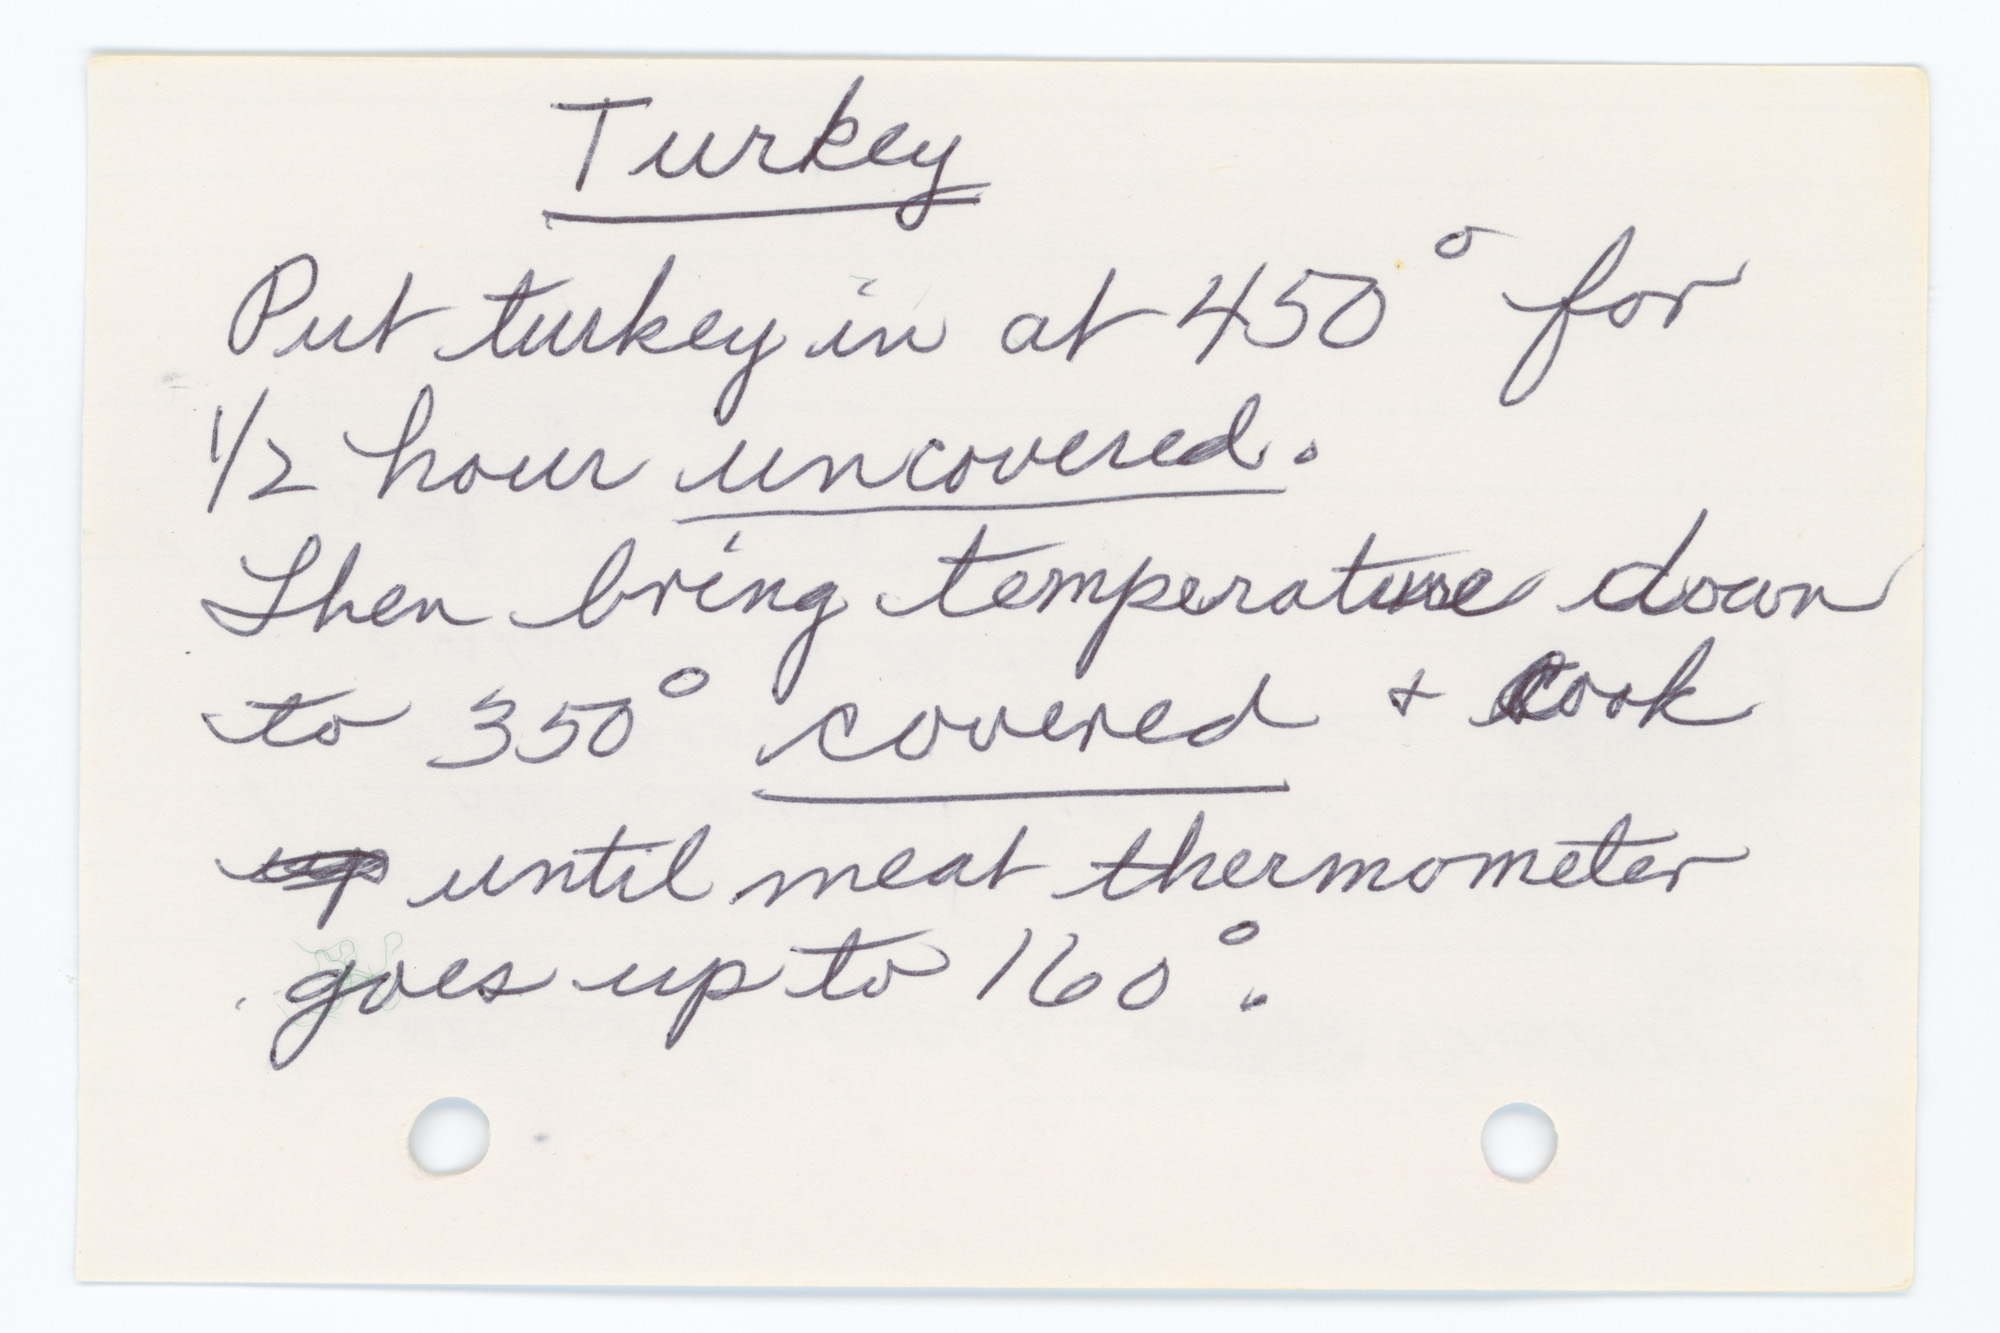 Turkey
Put turkey in at 450° for
1/2 hour uncovered.
Then bring temperature down
to 350° covered + cook
up until meat thermometer
goes up to 160°.